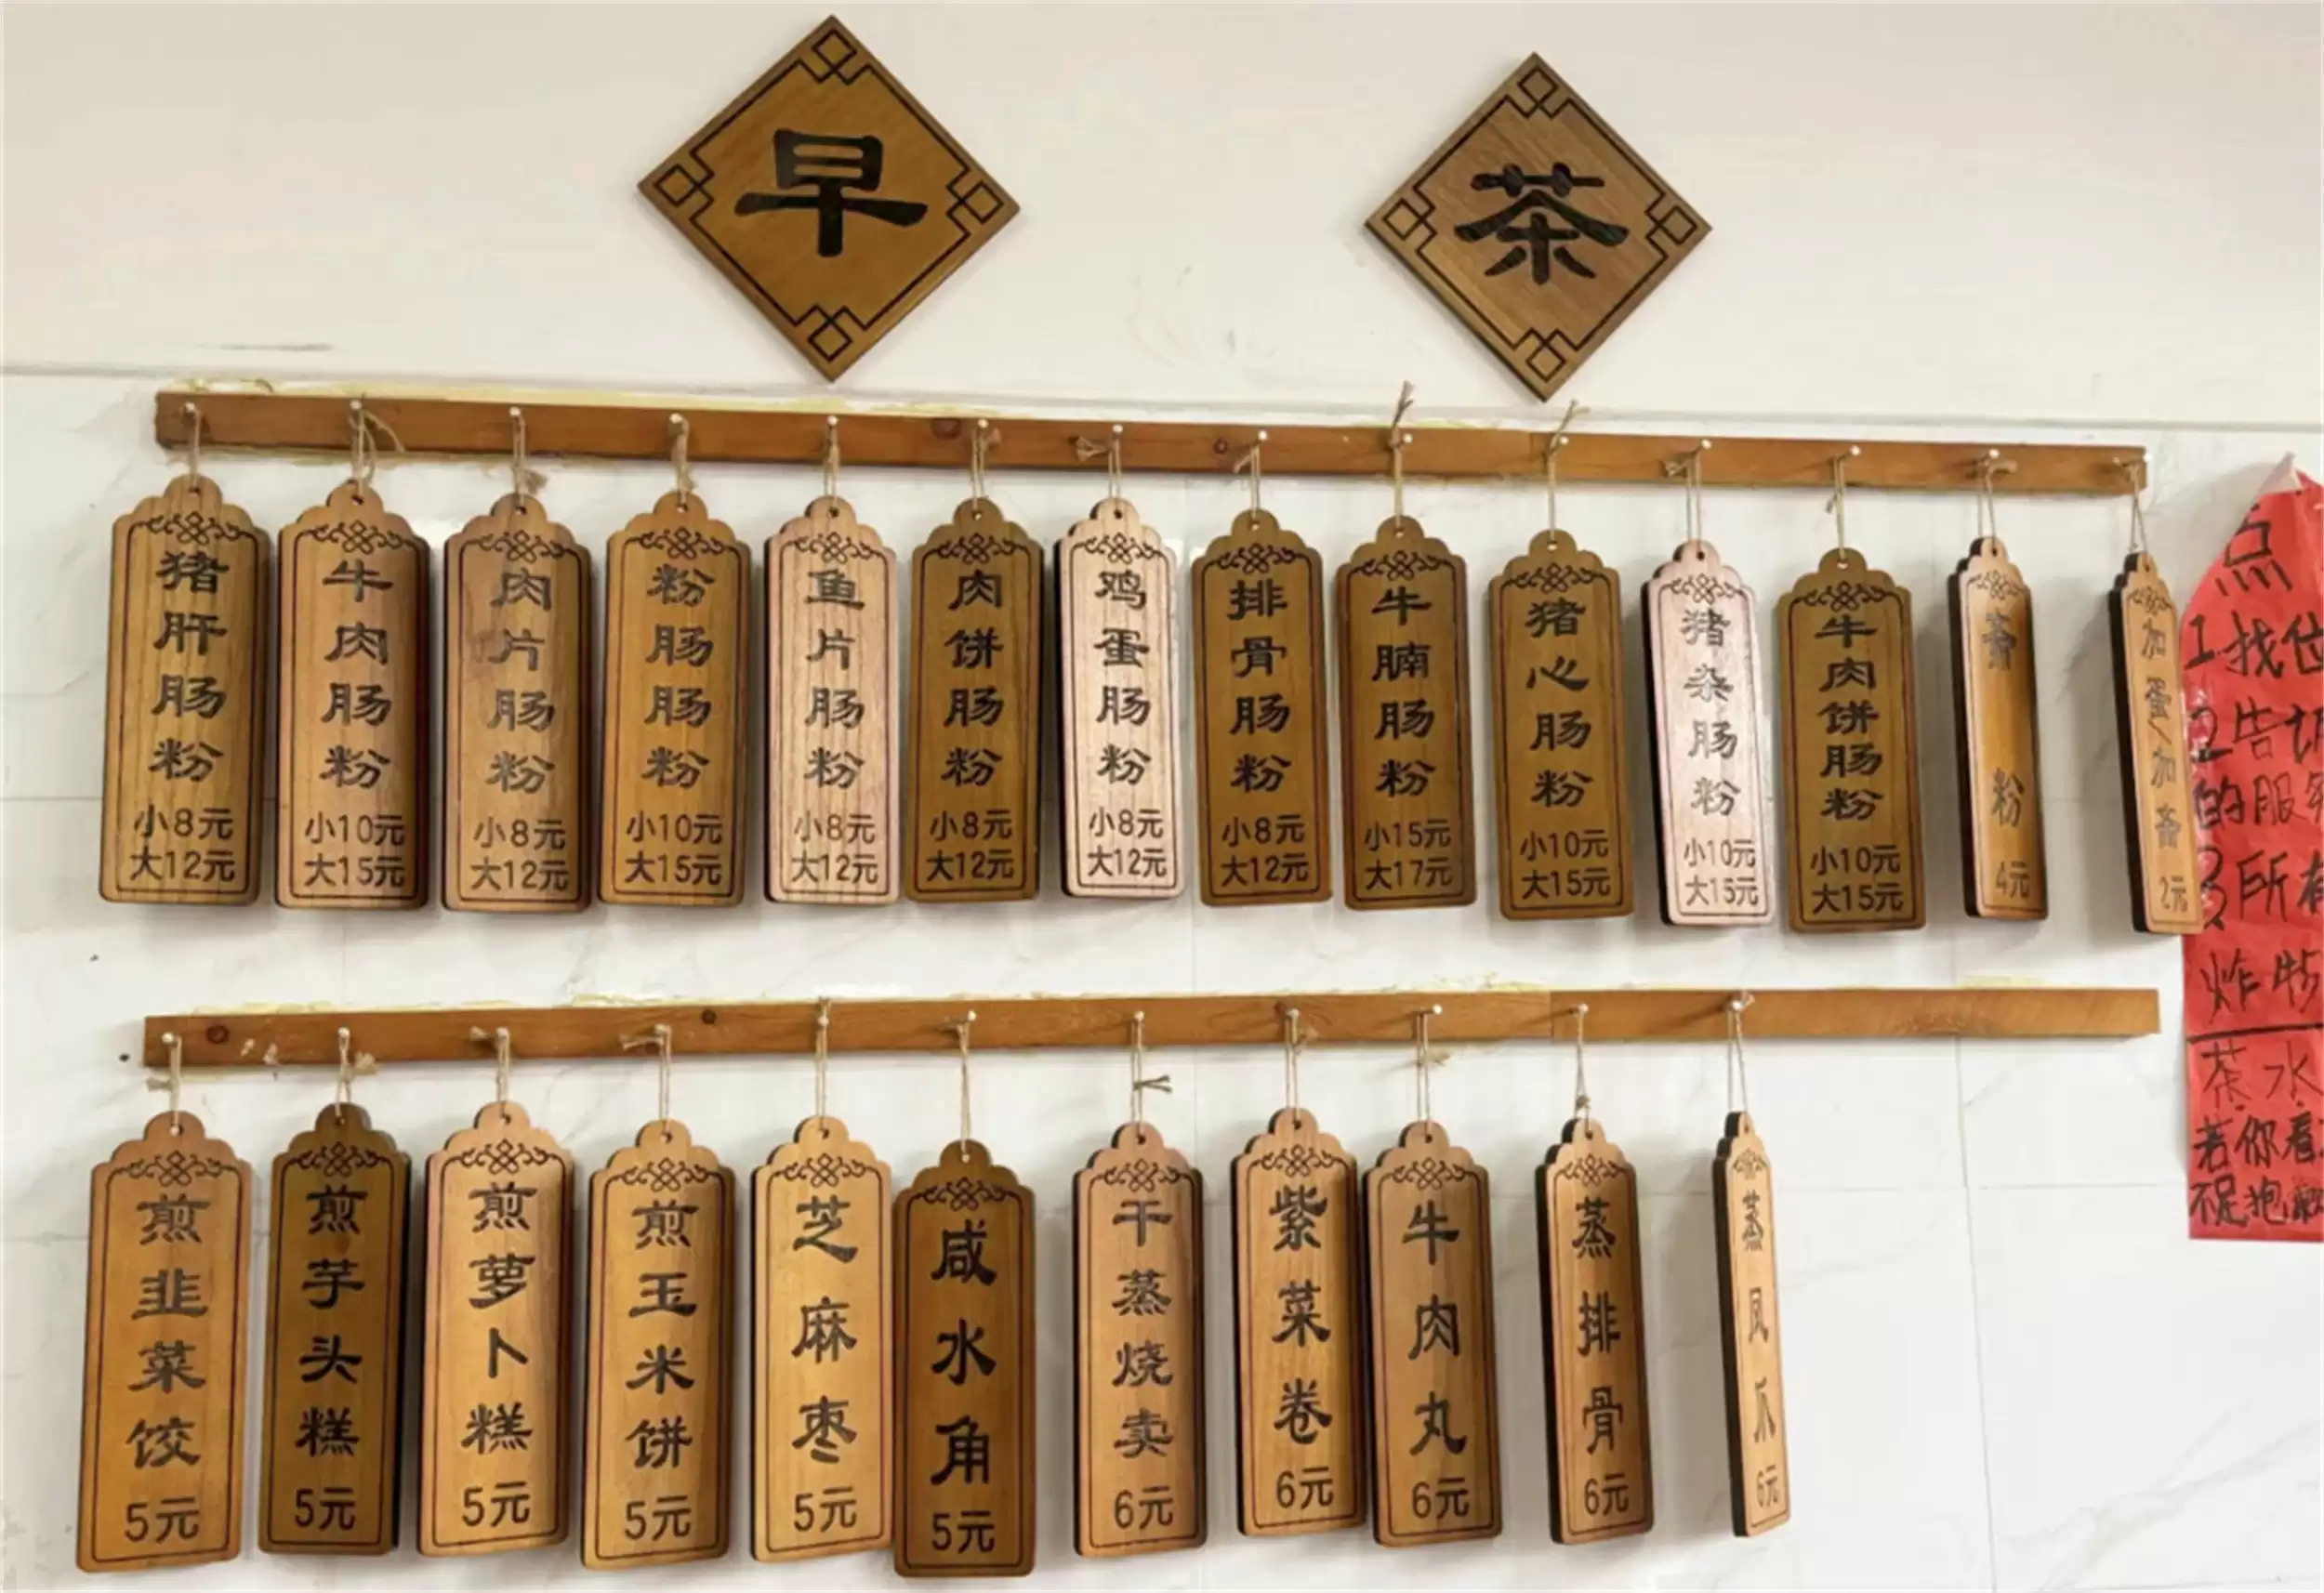 早茶
猪肝肠粉
小8元
大12元
牛肉肠粉
小10元
大15元
肉片肠粉
小8元
大12元
粉肠肠粉
小10元
大15元
鱼片肠粉
小8元
大12元
肉饼肠粉
小8元
大12元
鸡蛋肠粉
小8元
大12元
排骨肠粉
小8元
大12元
牛腩肠粉
小15元
大17元
猪心肠粉
小10元
大15元
猪杂肠粉
小10元
大15元
牛肉饼肠粉
小10元
大15元
斋粉
4元
加蛋/加斋
2元
煎韭菜饺
5元
煎芋头糕
5元
煎萝卜糕
5元
煎玉米饼
5元
芝麻枣
5元
咸水角
5元
干蒸烧卖
6元
紫菜卷
6元
牛肉丸
6元
蒸排骨
6元
蒸凤爪
6元
点
1.找
2告
的服
3所有
炸物
茶水
若你看
不足抱